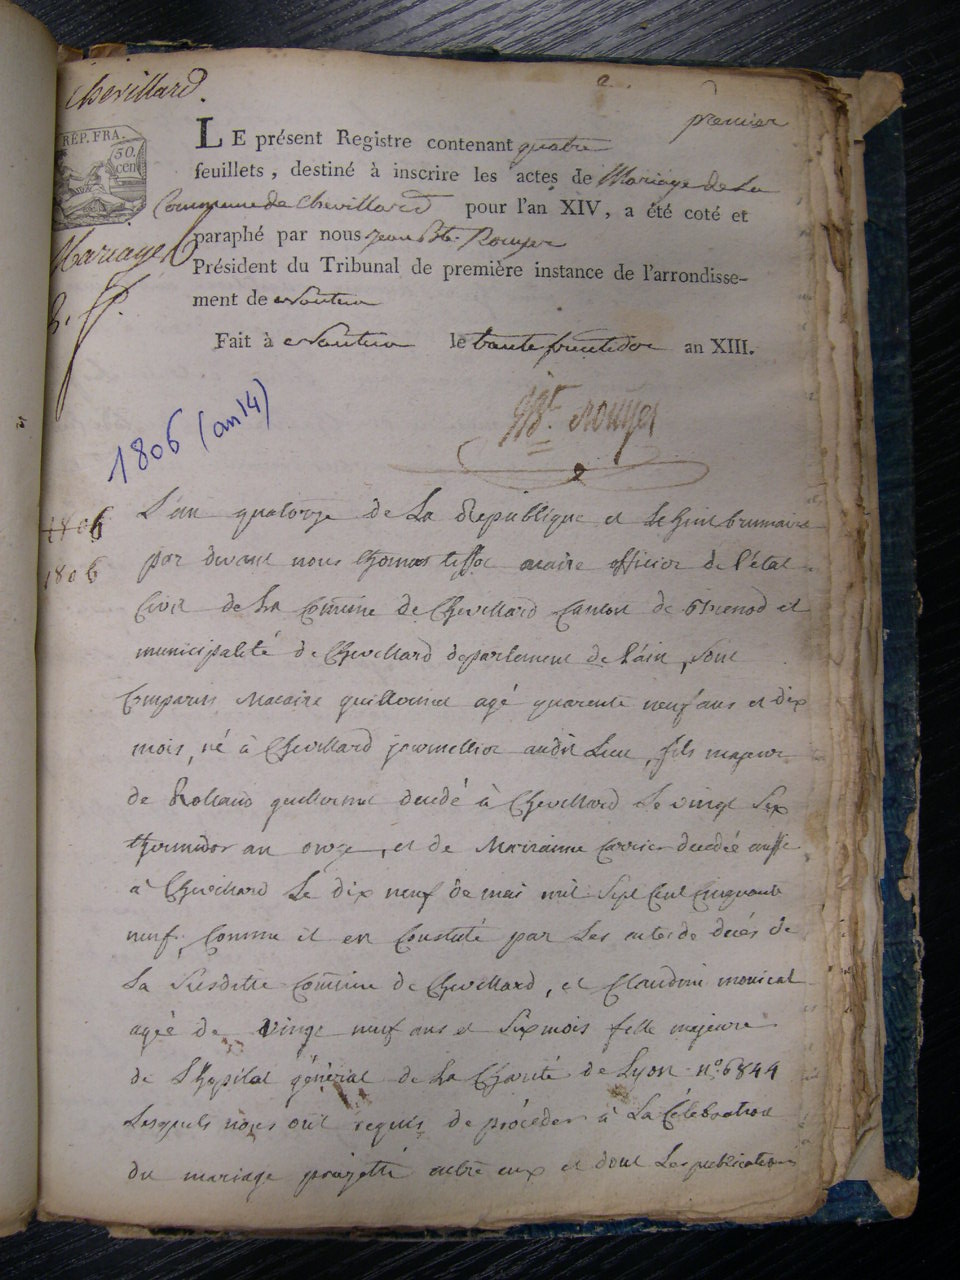 Chevillard.
premier
RÉP. FRA.
50.
cen
LE présent Registre contenant quatre
feuillets, destiné à inscrire les actes de Mariage de La
Commune de Chevillard pour l'an XIV, a été coté et
Mariage
paraphé par nous Jean Bte. Rouyer
Président du Tribunal de première instance de l'arrondisse-
ment de Nantua
Fait à Nantua le trente fructidor an XIII.
1806 (an 14)
Bte. Rouyer
1806
1806
L'an quatorze de La Republique et le huit brumaire
par devant nous thomas tissot maire officier de l'état
Civil de La Comune de Chevillard Canton de Brenod et
municipalité de Chevillard departement de l'ain, sont
Comparus Macaire guillermet agé quarente neuf ans et dix
mois, né à Chevillard journellier audit Lieu, fils majeur
de Rolland guillermet decedé à Chevillard Le vingt Six
thermidor an onze, et de Marianne Carrier decedée aussi
à Chevillard Le dix neuf de mai mil Sept Cent Cinquante
neuf, Comme il en Constate par Les actes de décés de
La Susditte Comune de Chevillard, et Claudine monical
agée de vingt neuf ans et Six mois fille majeure
de L'hopital général de La Charité de Lyon n° 6844
Lesquels nous ont requis de procéder à La Célébration
du mariage projetté entre eux et dont Les publications